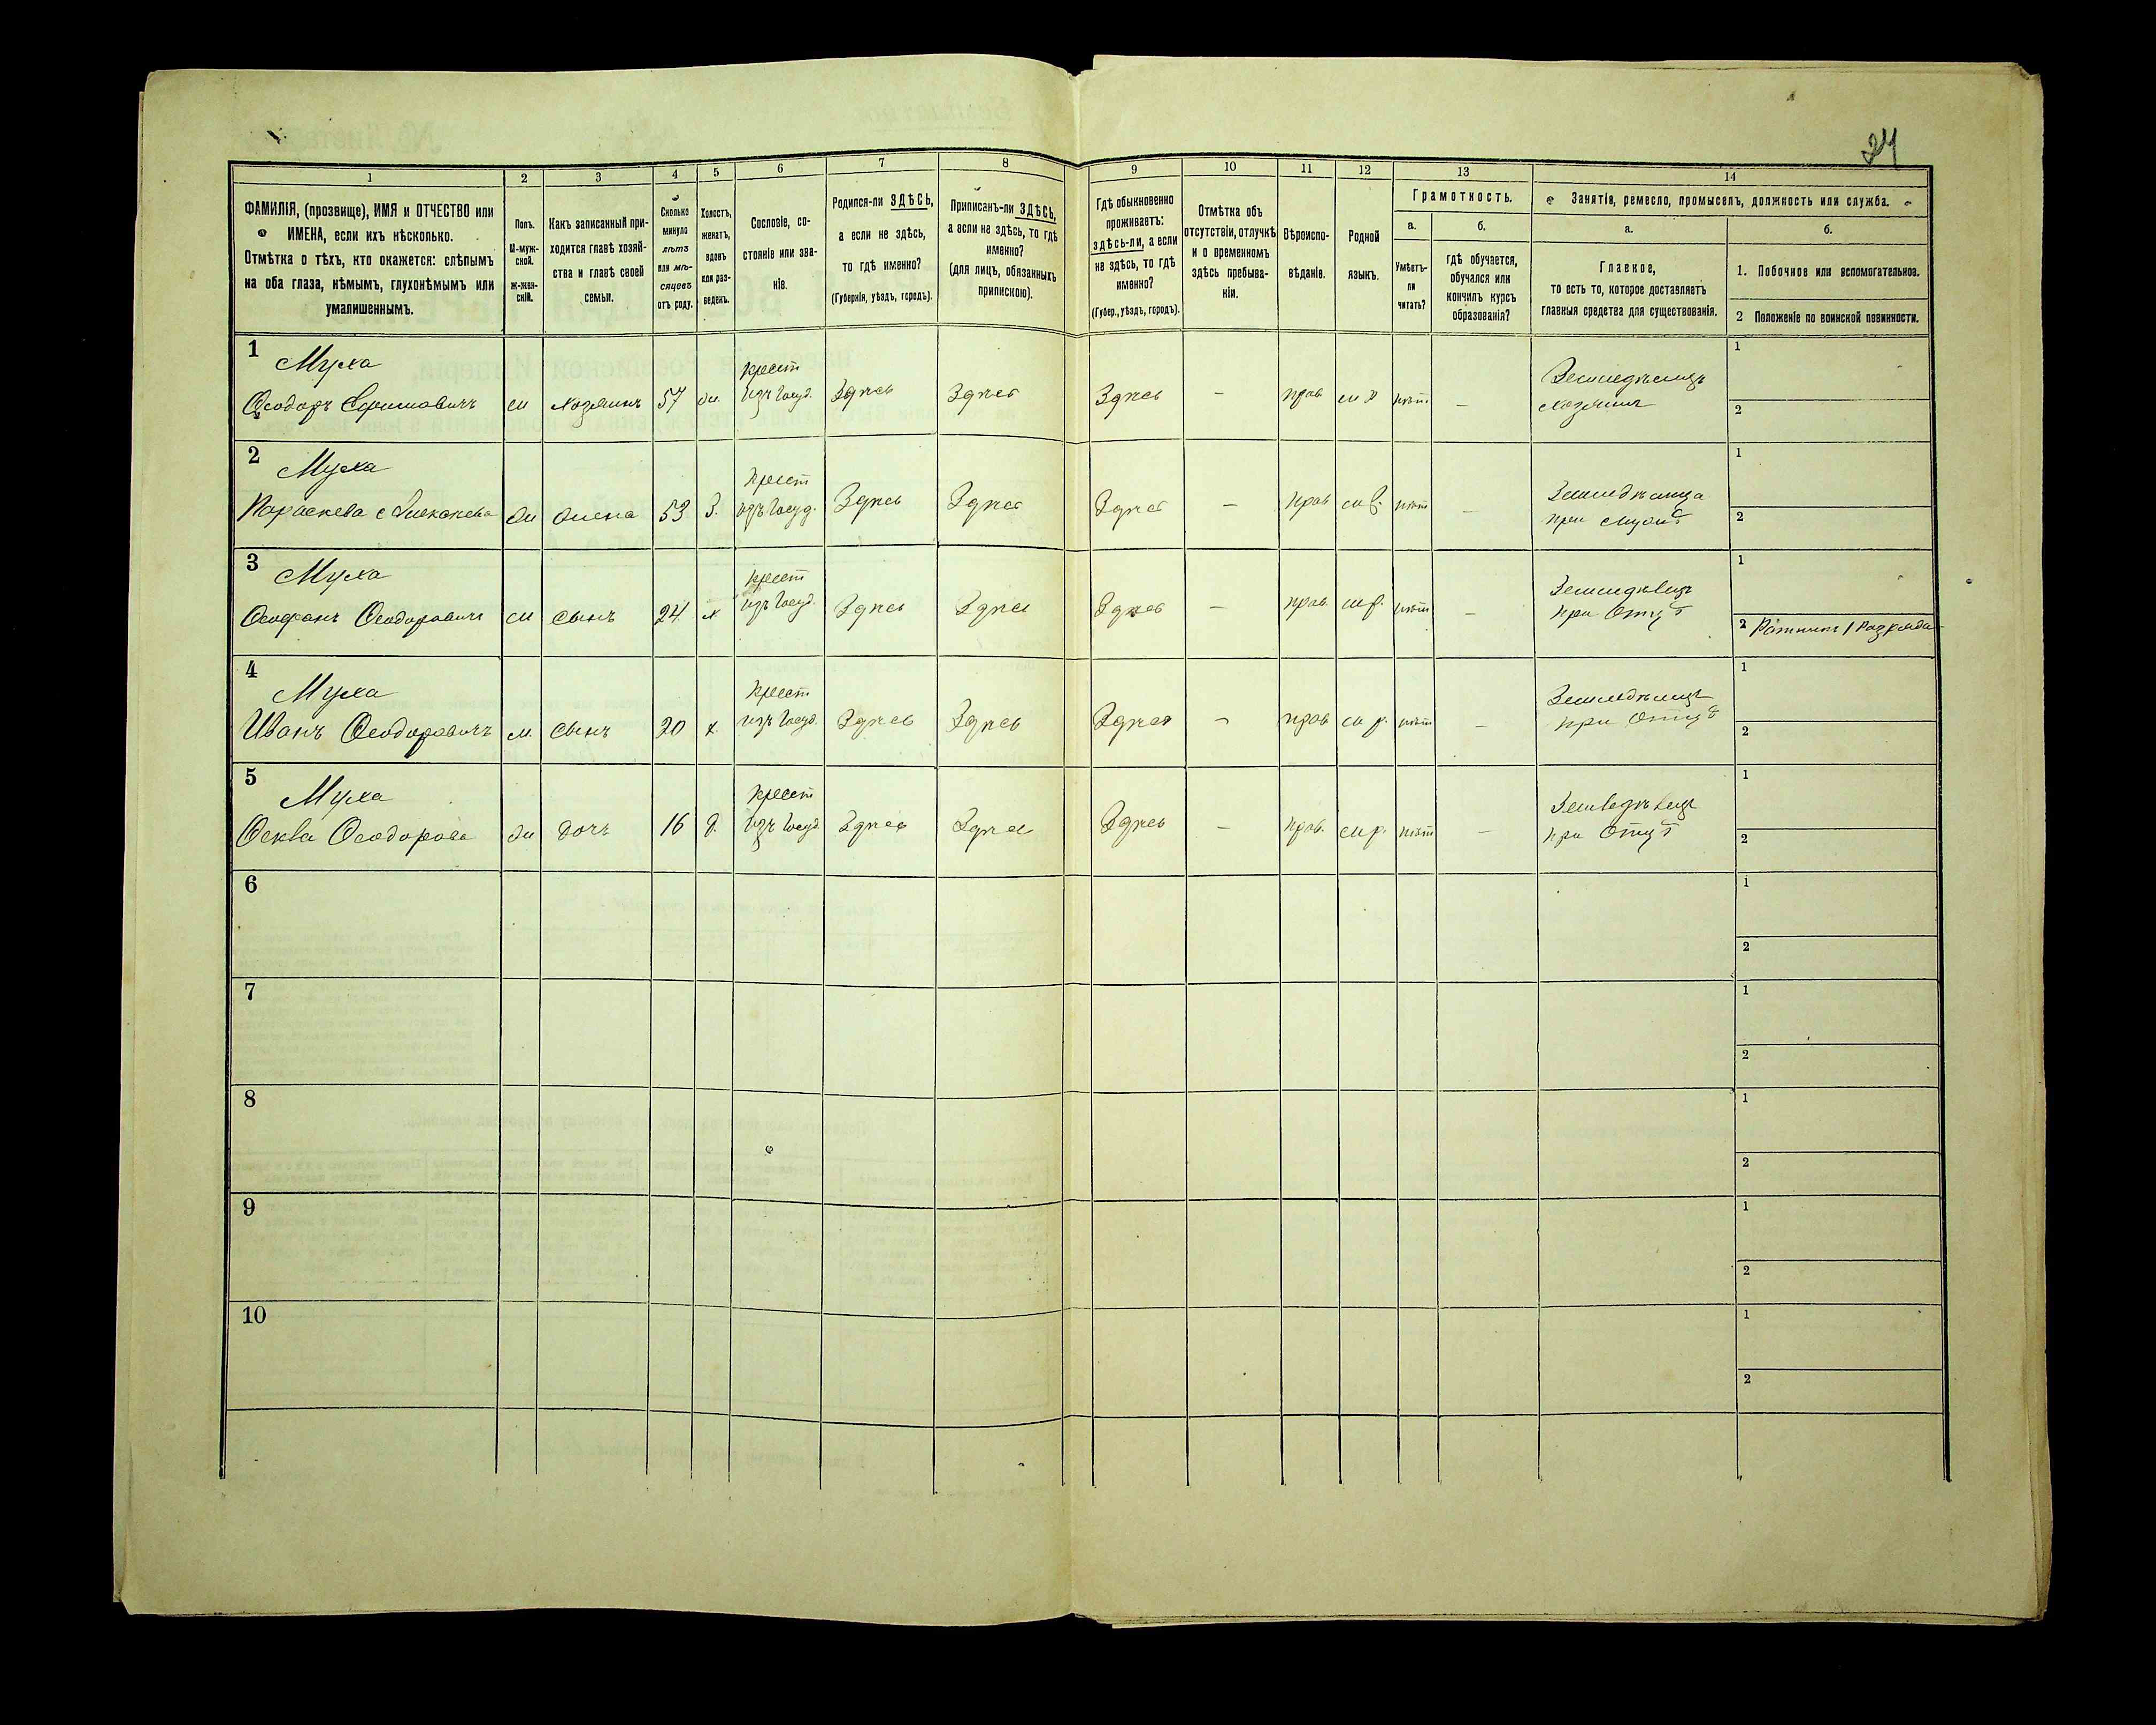 24
1 2 3 4 5 6 7 8 9 10 11 12 13 14
ФАМИЛІЯ, (прозвище), ИМЯ и ОТЧЕСТВО или
ИМЕНА, если ихъ нѣсколько.
Отмѣтка о тѣхъ, кто окажется: слѣпымъ
на оба глаза, нѣмымъ, глухонѣмымъ или
умалишеннымъ.
Полъ.
М-муж-
ской.
ж-жен-
скій.
Какъ записанный при-
ходится главѣ хозяй-
ства и главѣ своей
семьи.
Сколько
минуло
лѣтъ
или мѣ-
сяцевъ
отъ роду.
Холостъ,
женатъ,
вдовъ
или раз-
веденъ.
Сословіе, со-
стояніе или зва-
ніе.
Родился-ли ЗДѢСЬ,
а если не здѣсь,
то гдѣ именно?
(Губернія, уѣздъ, городъ).
Приписанъ-ли ЗДѢСЬ,
а если не здѣсь, то гдѣ
именно?
(для лицъ, обязанныхъ
припискою).
Гдѣ обыкновенно
проживаетъ:
здѣсь-ли, а если
не здѣсь, то гдѣ
именно?
(Губер., уѣздъ, городъ).
Отмѣтка объ
отсутствіи, отлучкѣ
и о временномъ
здѣсь пребыва-
ніи.
Вѣроиспо-
вѣданіе.
Родной
языкъ.
Грамотность.
а.
Умѣетъ-
ли
читать?
б.
гдѣ обучается,
обучался или
кончилъ курсъ
образованія?
Занятія, ремесло, промыселъ, должность или служба.
а.
Главное,
то есть то, которое доставляетъ
главныя средства для существованія.
б.
1. Побочное или вспомогательное.
2 Положеніе по воинской повинности.
1 Муха крест Земледѣлецъ 1
Ѳеодоръ м хозяинъ 57 ж. изъ Госуд. Здѣсь Здѣсь Здѣсь — прав нѣт — хозяинъ 2
2 Муха Крест 1
Параскева ж жена 53 З. изъ Госуд. Здѣсь Здѣсь Здѣсь — прав нѣт — при мужѣ 2
3 Муха крест Земледѣлецъ 1
Ѳеофанъ Ѳеодоровичъ м сынъ 24 х изъ Госуд. Здѣсь Здѣсь Здѣсь — прав. м.р. нѣт — при Отцѣ 2 Ратникъ 1 Разряда
4 Муха Крест Земледѣлецъ 1
Иванъ Ѳеодоровичъ м. сынъ 20 х. изъ Госуд. Здѣсь Здѣсь Здѣсь — прав м р. нѣт — при Отцѣ 2
5 Муха Крест Земледѣлецъ 1
Ѳеодорова ж дочь 16 д. изъ Госуд Здѣсь Здѣсь Здѣсь — прав. м р. нѣт — при Отцѣ 2
6 1
2
7 1
2
8 1
2
9 1
2
10 1
2